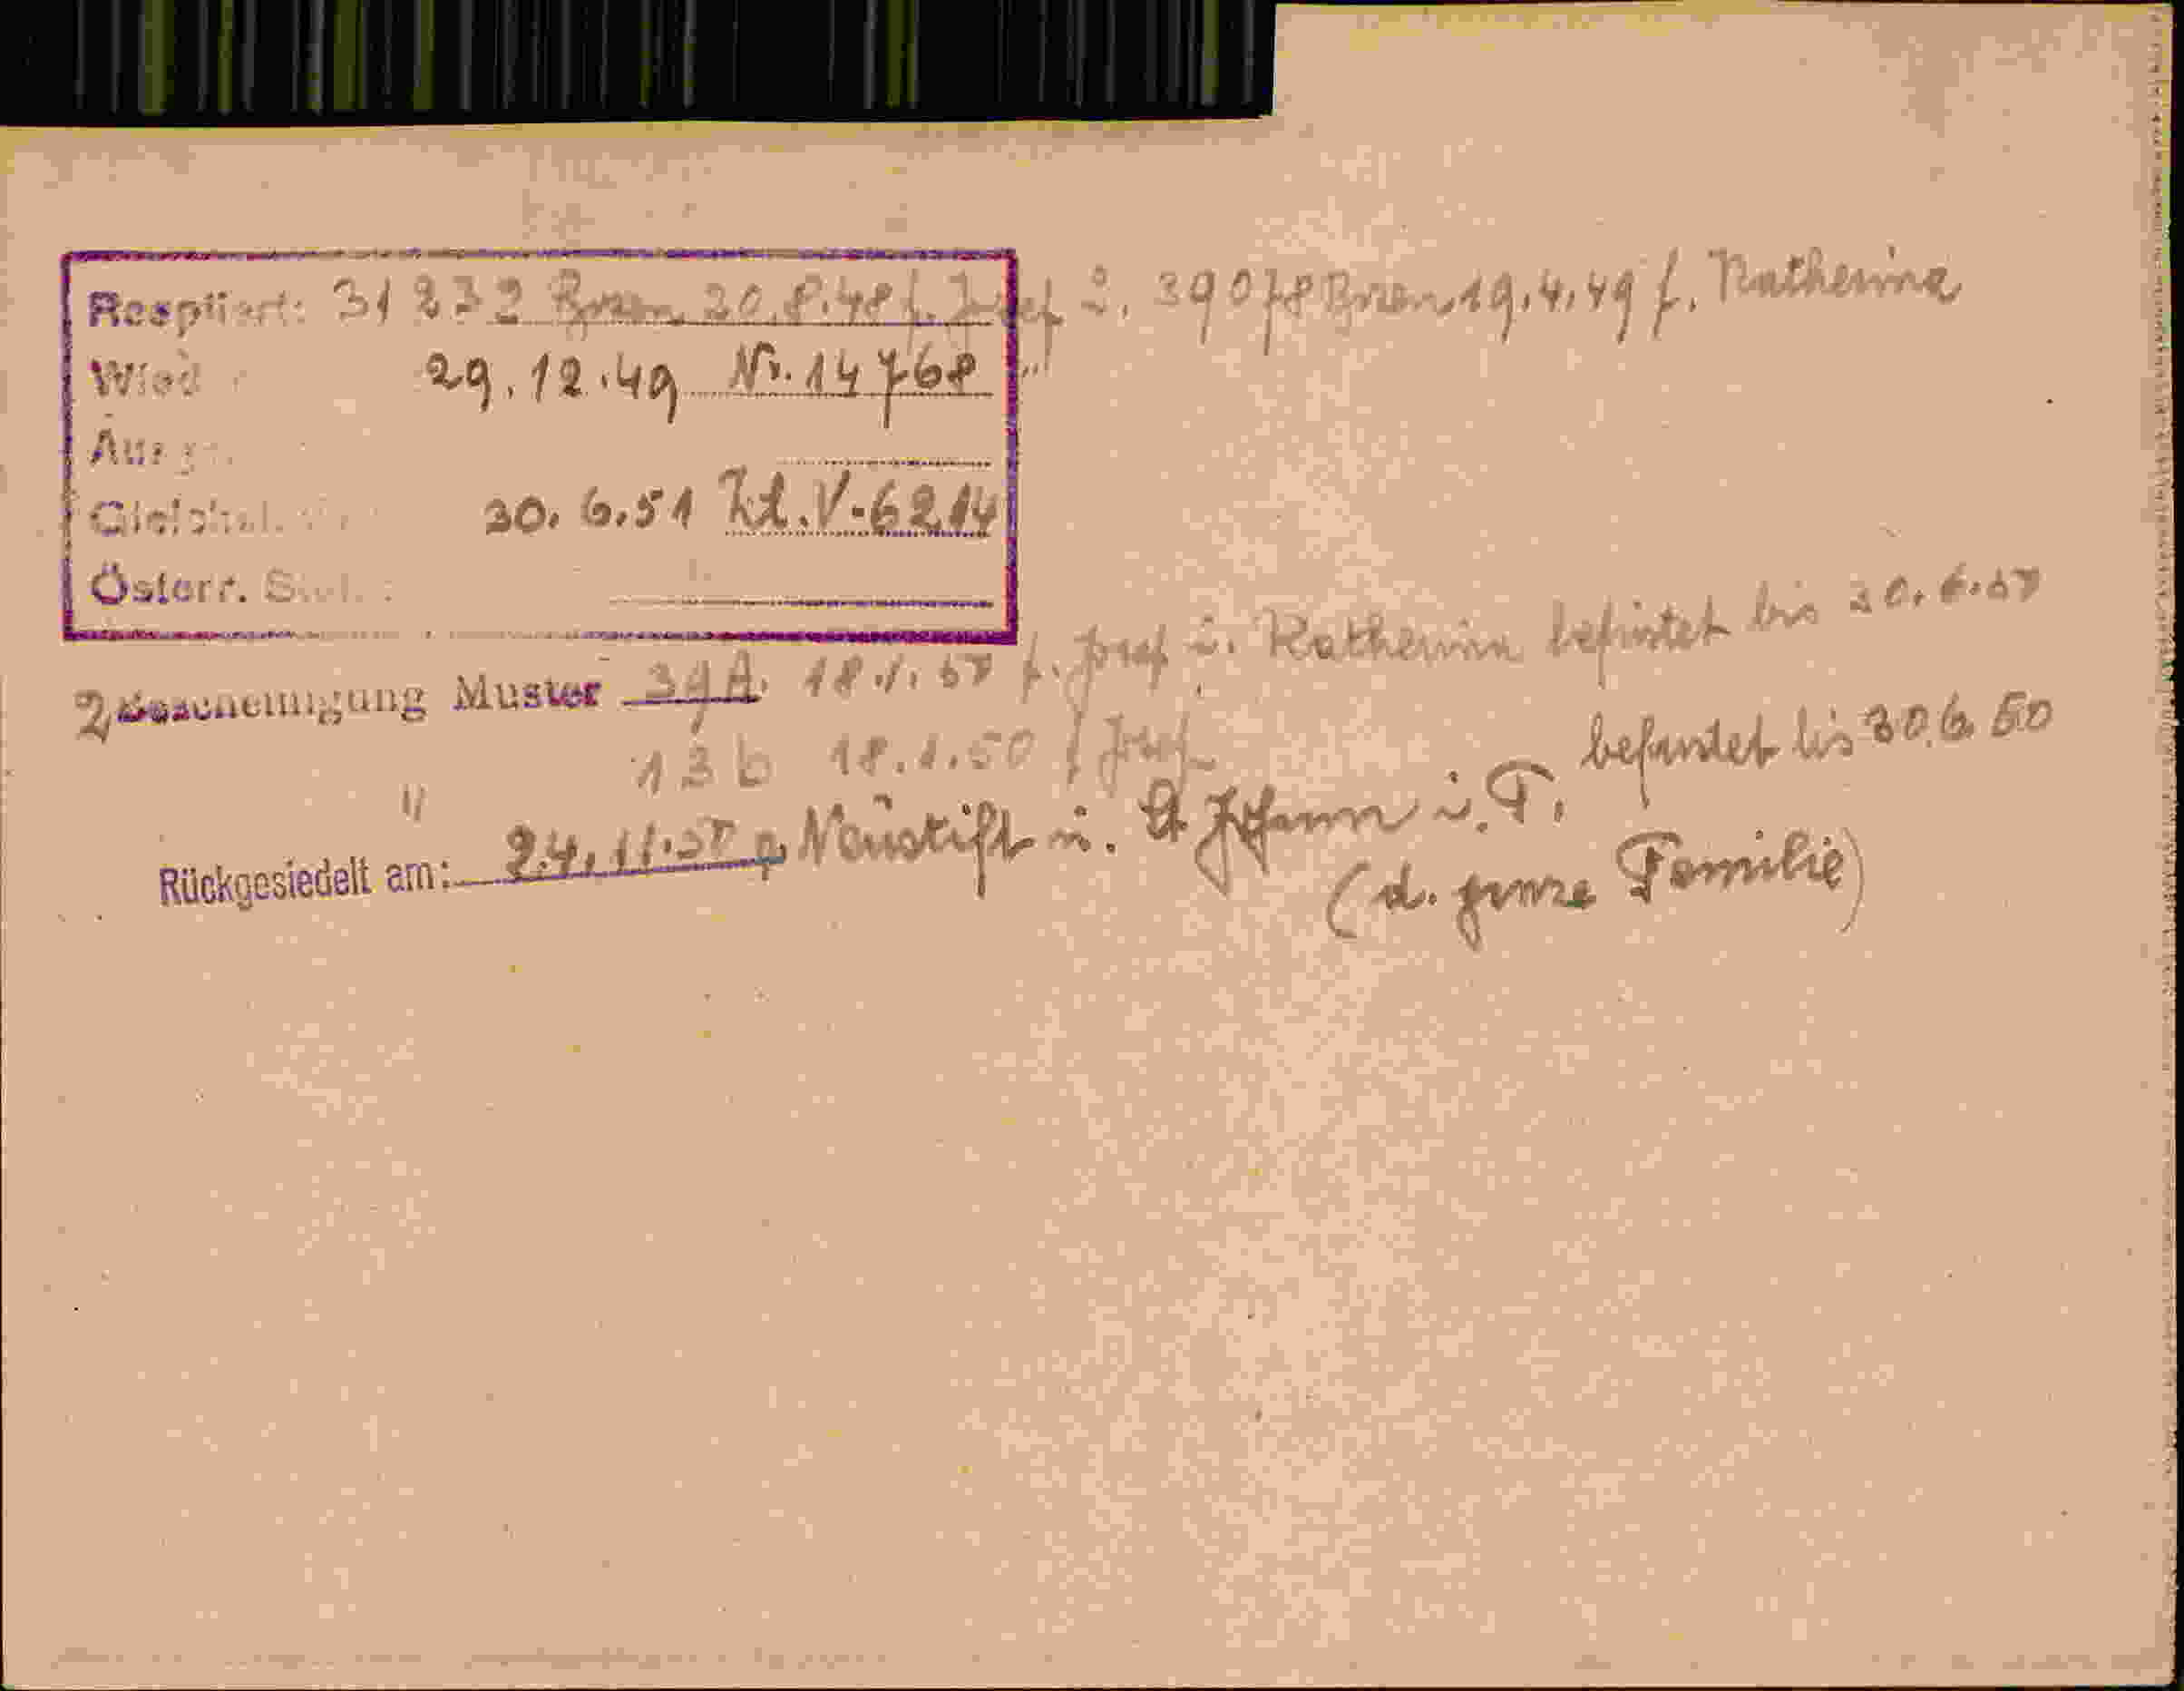 Reoptiert: 31232 Bozen 20.8.48 f. Josef u. 39078 Bozen 19.4.49 f. Katherina
Wied 29.12.49 Nr. 14768 "
Ausge
Gleichst. 30.6.51 Zl. V-6214
Österr. St
2 Bescheinigung Muster 39A. 18.1.50 f. Josef u. Katherina befristet bis 30.6.50
" 13b 18.1.50 f Josef befristet bis 30.6.50
Rückgesiedelt am: 24.11.50 n. Neustift n. St Johann i. T.
(d. ganze Familie)